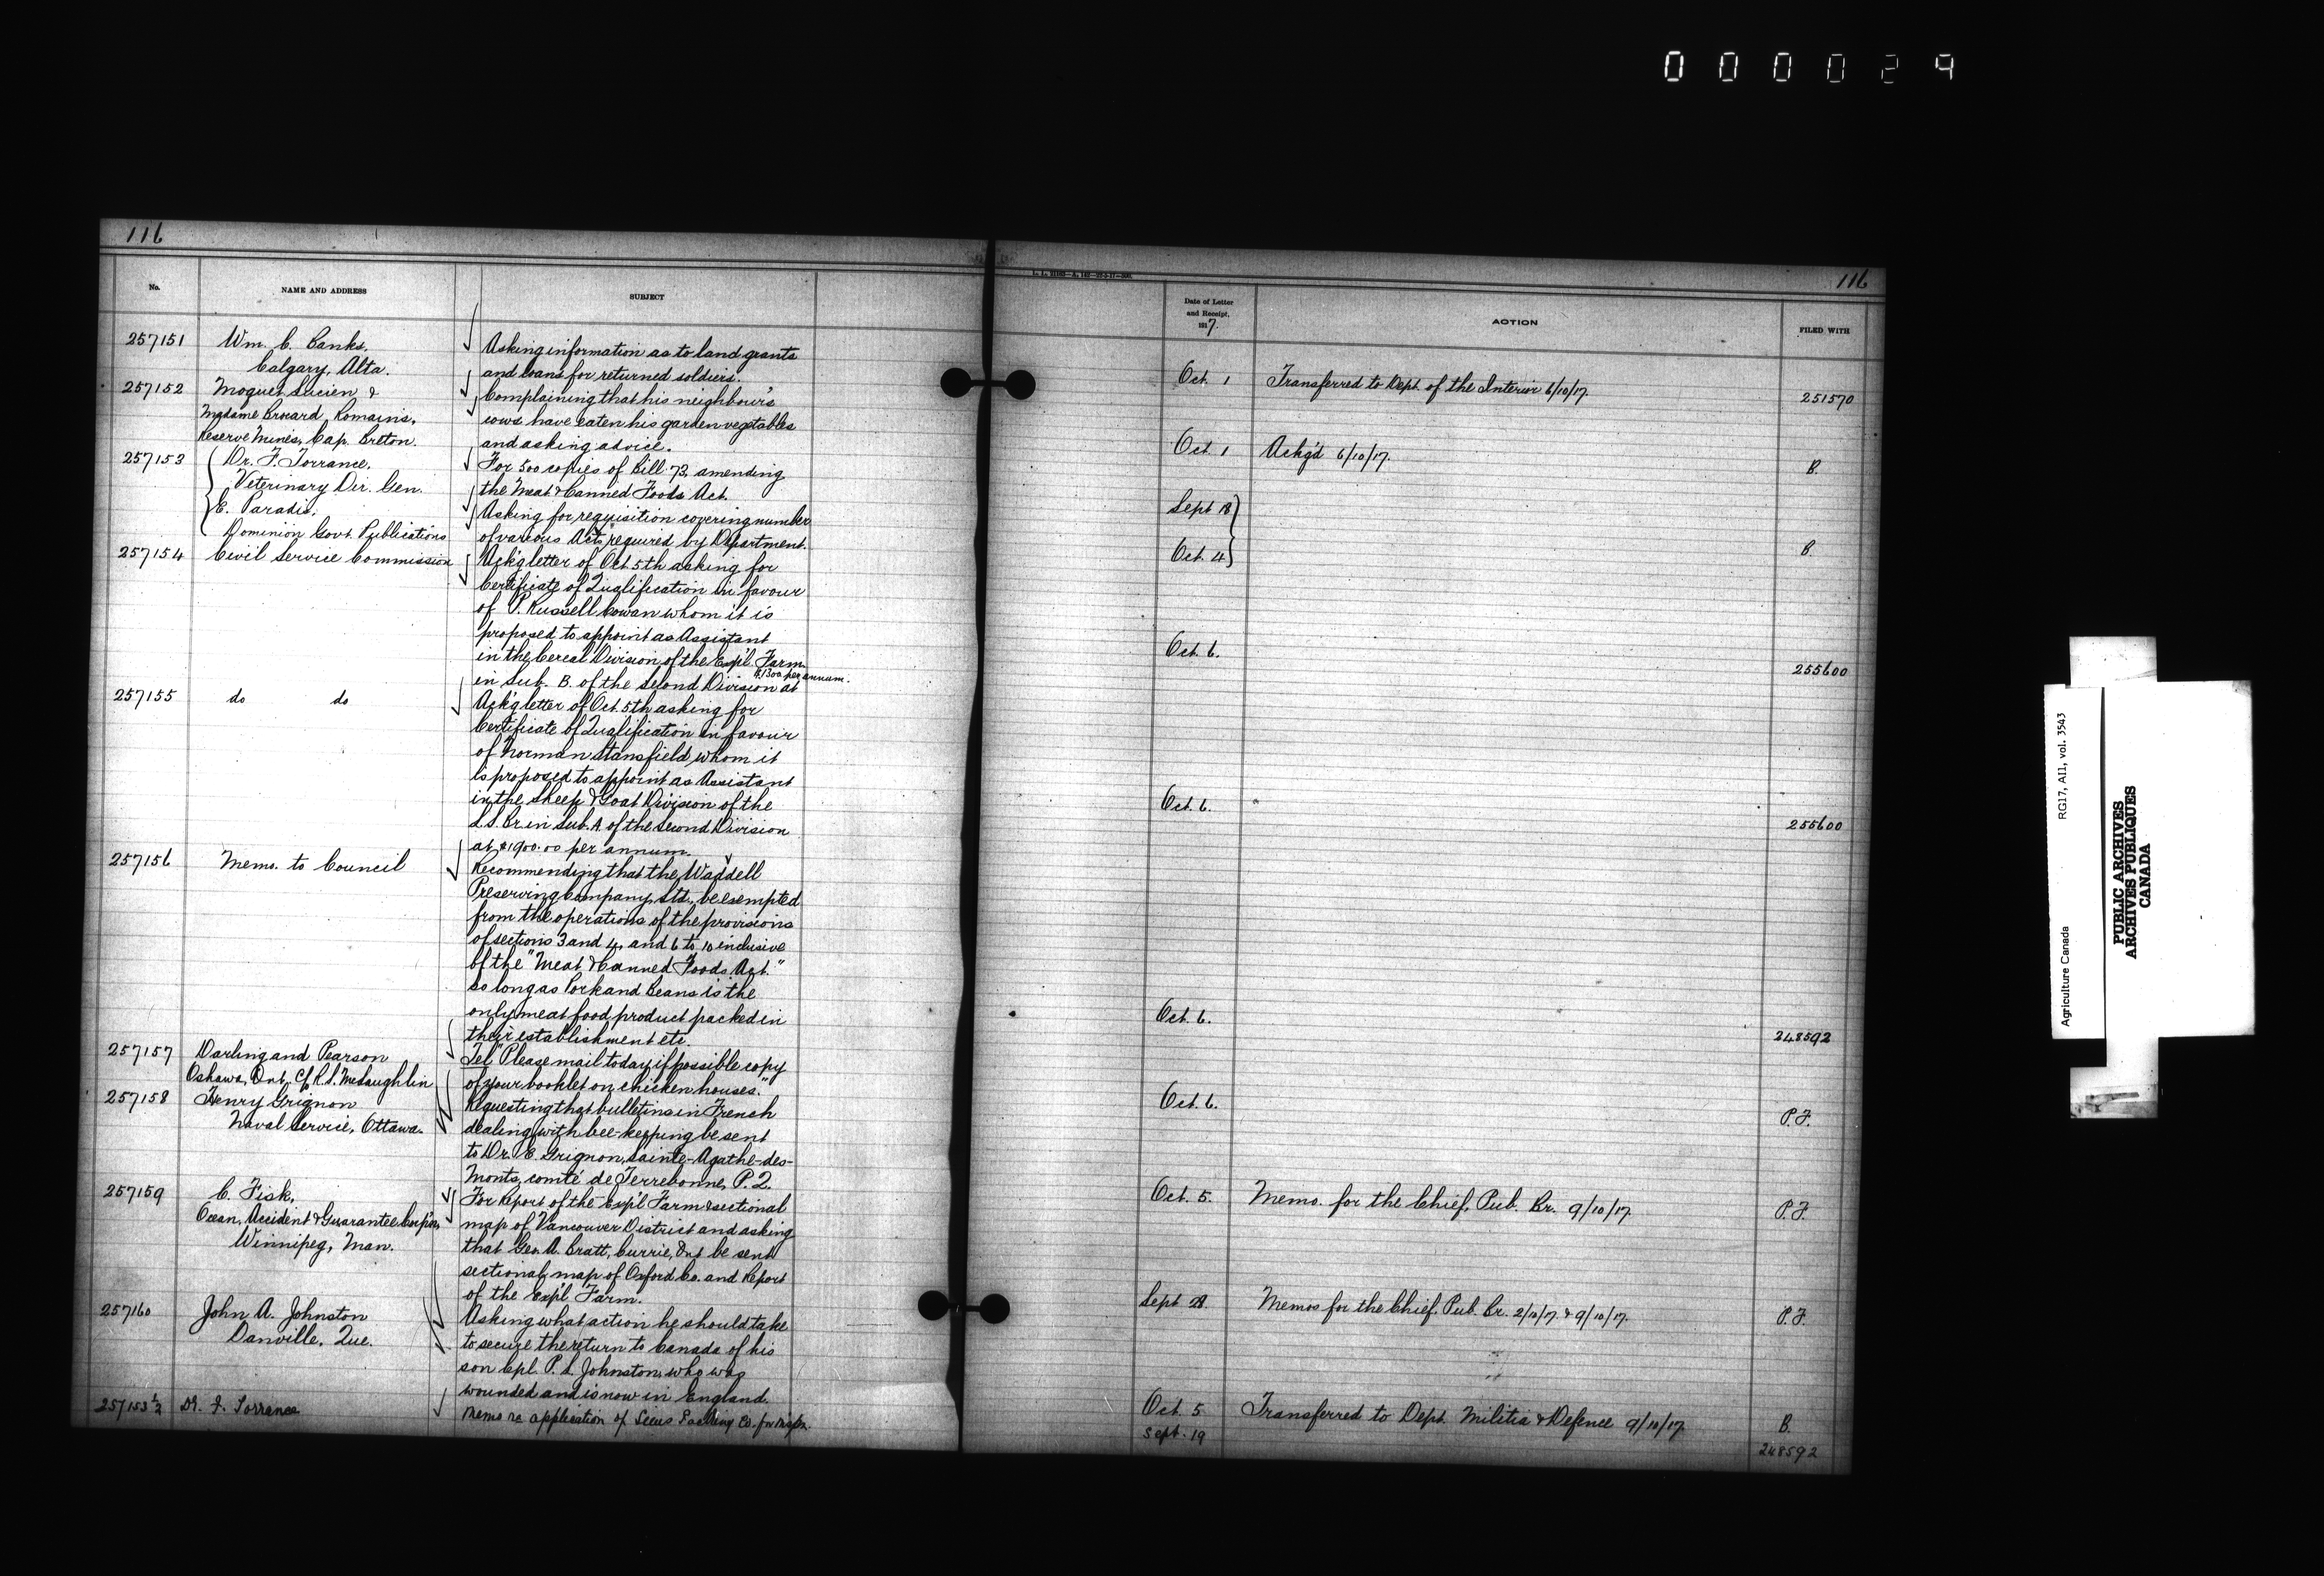 000029
116
No.
NAME AND ADDRESS
SUBJECT
257151
Wm. C. Banks,
Calgary, Alta.
Asking information as to land grants
and loans for returned soldiers.
257152
Moquet, Lucien &
Madame Brocard, Romains,
Reserve Mines, Cap. Breton.
Complaining that his neighbour's
cows have eaten his garden vegetables
and asking advice.
257153
Dr. F. Torrance,
Veterinary Dir. Gen.
E. Paradis,
Dominion Govt. Publications
For 500 copies of Bill 73, amending
the Meat & Canned Foods Act.
Asking for requisition covering number
of various Acts required by Department.
257154
Civil Service Commission
Ack'g letter of Oct. 5th asking for
Certificate of Qualification in favour
of P. Russell Cowan whom it is
proposed to appoint as Assistant
in the Cereal Division of the Exp'l Farm
in Sub. B. of the Second Division at
$1300 per annum.
257155
do do
Ack'g letter of Oct. 5th asking for
Certificate of Qualification in favour
of Norman Stansfield, whom it
is proposed to appoint as Assistant
in the Sheep & Goat Division of the
L.S. Br. in Sub. A of the Second Division
at $1900.00 per annum.
257156
Memo. to Council
Recommending that the Waddell
Preserving Company, Ltd., be exempted
from the operations of the provisions
of sections 3 and 4, and 6 to 10 inclusive
of the "Meat & Canned Foods Act."
so long as Pork and Beans is the
only meat food product packed in
their establishment etc.
257157
Darling and Pearson
Oshawa, Ont, C/ R.S. McLaughlin
Tel. "Please mail today if possible copy
of your booklet on chicken houses."
257158
Henry Grignon
Naval Service, Ottawa.
Requesting that bulletins in French
dealing with bee-keeping be sent
to Dr. E. Grignon, Sainte-Agathe-des-
Monts, comté de Terrebonne, P.Q.
257159
C. Fisk,
Ocean, Accident & Guarantee Corp'n,
Winnipeg, Man.
For Report of the Exp'l Farm & sectional
map of Vancouver District and asking
that Geo. A. Pratt, Currie, Ont be sent
sectional map of Oxford Co. and Report
of the Exp'l Farm.
257160
John A. Johnston
Danville, Que.
Asking what action he should take
to secure the return to Canada of his
son Cpl. P. L. Johnston, who was
wounded and is now in England.
257153½
Dr. F. Torrance
Memo re application of Packing Co. for
116
Date of Letter
and Receipt,
1917.
ACTION
FILED WITH
Oct. 1
Transferred to Dept. of the Interior 6/10/17.
251570
Oct. 1
Ackg'd 6/10/17.
B.
Sept 18
Oct. 4
B.
Oct. 6.
255600
Oct. 6.
255600
Oct. 6.
248592
Oct. 6.
P.F.
Oct. 5.
Memo. for the Chief, Pub. Br. 9/10/17.
P.F.
Sept 28.
Memos for the Chief, Pub. Br. 2/10/17. & 9/10/17.
P.F.
Oct. 5
Transferred to Dept. Militia & Defence 9/10/17.
B.
Sept. 19
248592
Agriculture Canada
RG17, A11, vol. 3543
PUBLIC ARCHIVES
ARCHIVES PUBLIQUES
CANADA